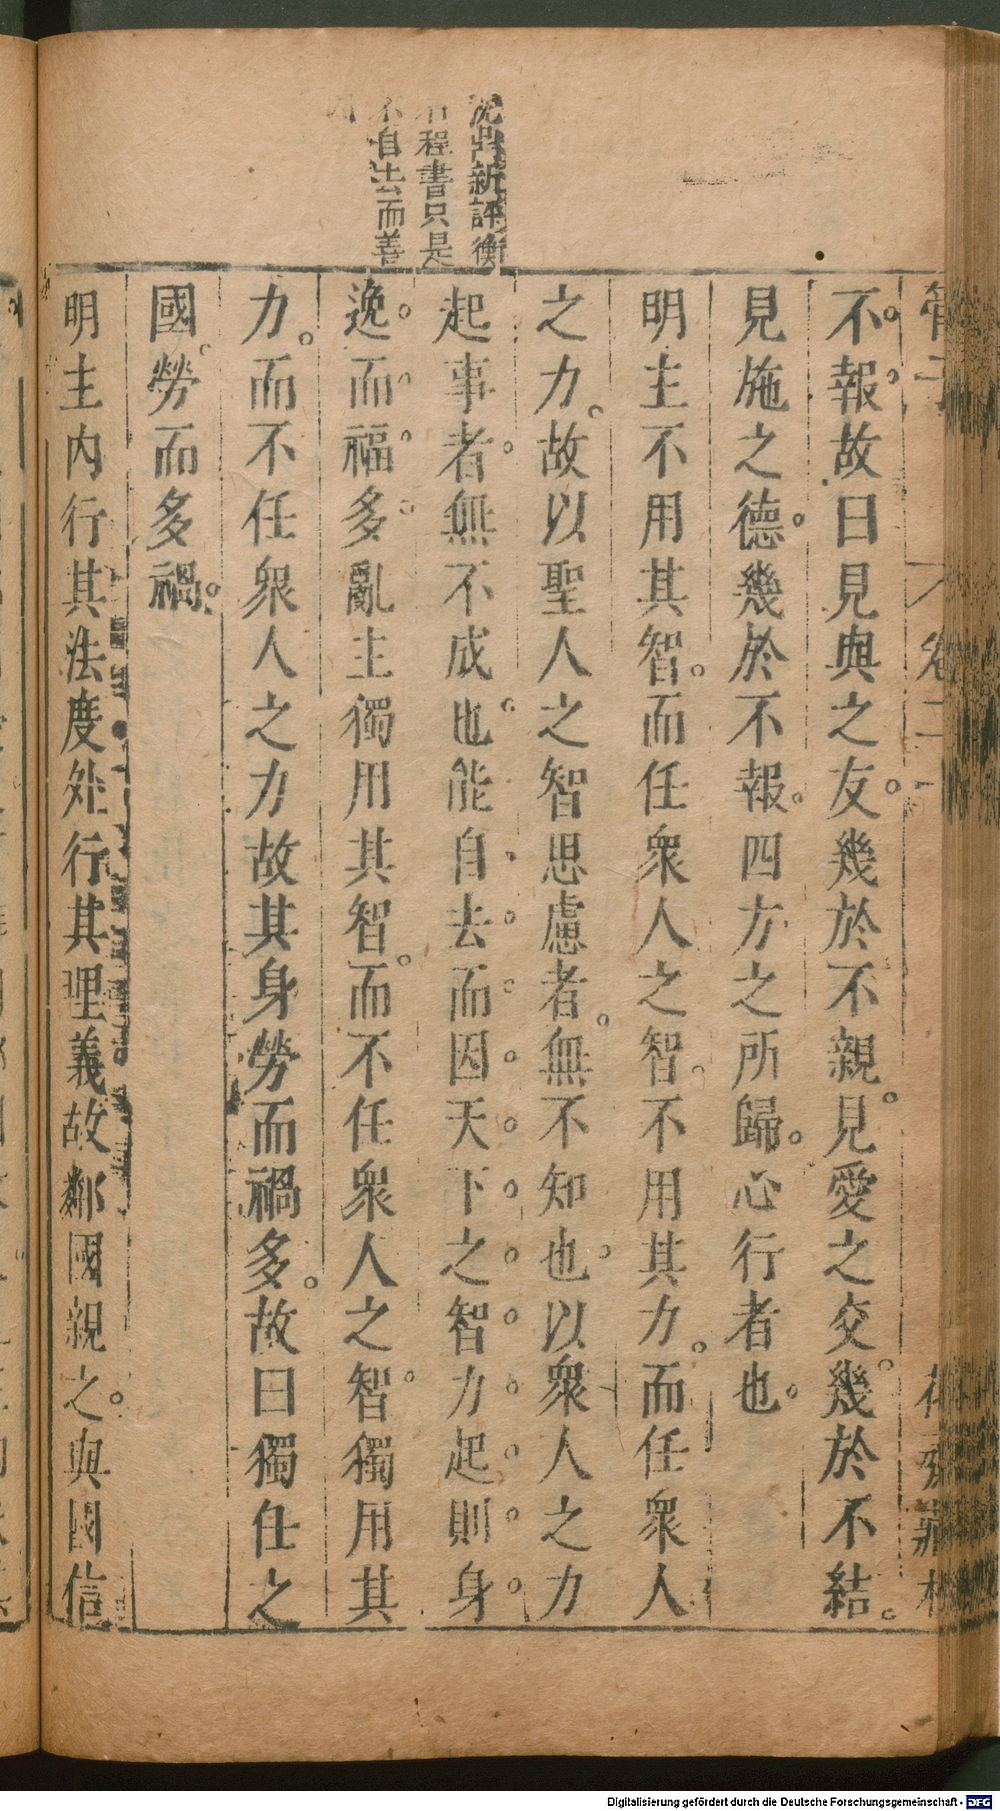 沈鼎新評衡
石程書只是
不自去而善
不報故曰見與之友。幾於不親。見愛之交。幾於不結。
見施之德。幾於不報。四方之所歸。心行者也。
明主不用其智。而任衆人之智。不用其力。而任衆人
之力。故以聖人之智思慮者。無不知也。以衆人之力
起事者。無不成也。能自去而因天下之智力起則身
逸。而福多。亂主獨用其智。而不任衆人之智。獨用其
力。而不任衆人之力故其身勞而禍多。故曰獨任之
國。勞而多禍。
明主內行其法度處行其理義故鄰國親之。與國信
管子
卷二十
花齋藏板
Digitalisierung gefördert durch die Deutsche Forschungsgemeinschaft - DFG